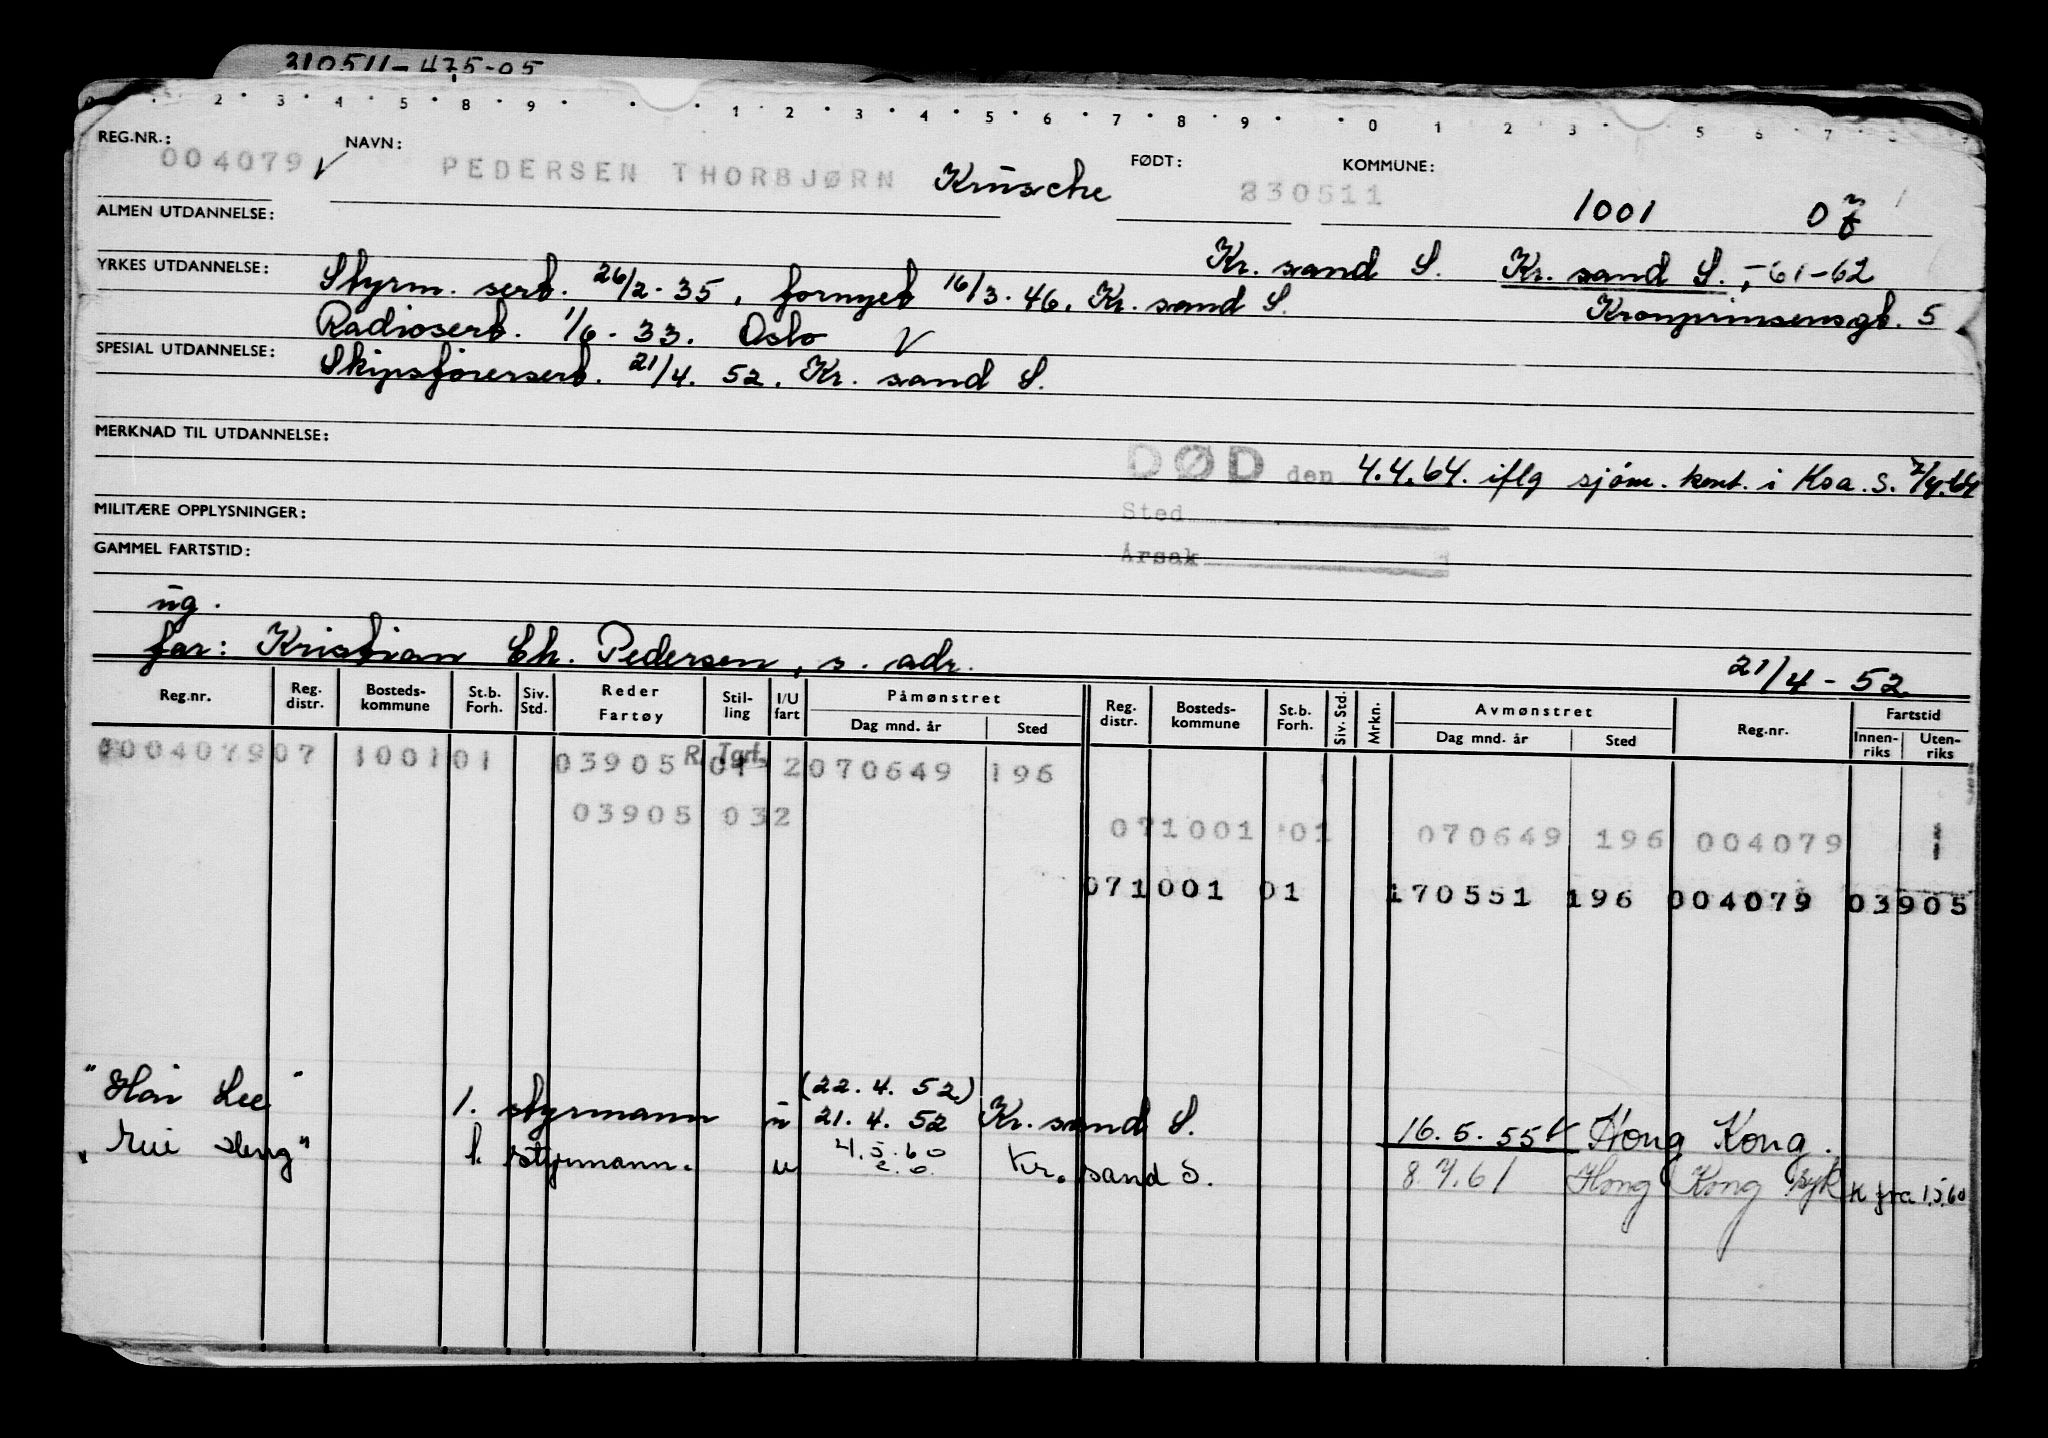 310511-475-05
2 3 4 5 8 9 1 2 3 4 5 6 7 8 9 0 1 2 3 5 6 7
REG.NR.: 004079 NAVN: PEDERSEN THORBJØRN Krusche FØDT: 230511 KOMMUNE: 1001 07
ALMEN UTDANNELSE:
Kr. sand S. Kr. sand S., -61-62
YRKES UTDANNELSE: Styrm. sert. 26/2-35, fornyet 16/3.46. Kr. sand S. Kronprinsensgt. 5
Radiosert. 1/6-33. Oslo
SPESIAL UTDANNELSE: Skipsførersert. 21/4. 52. Kr. sand S.
MERKNAD TIL UTDANNELSE:
DØD den 4.4.64. iflg sjøm. kont. i Krs. S. 7/4.64
Sted
MILITÆRE OPPLYSNINGER:
Årsak
GAMMEL FARTSTID:
ug.
far: Kristian Ch. Pedersen, s. adr. 21/4-52
Reg.nr. Reg. distr. Bosteds-kommune St.b. Forh. Siv. Std. Reder Fartøy Stil-ling I/U fart Påmønstret Dag mnd. år Sted Reg. distr. Bosteds-kommune St.b. Forh. Siv. Std. Mrkn. Avmønstret Dag mnd. år Sted Reg.nr. Fartstid Innen-riks Uten-riks
00407907 100101 03905 R. Tgrf. 2070649 196
03905 032
071001 01 070649 196 004079
071001 01 170551 196 004079 03905
"Hai Lee" 1. styrmann u (22.4.52) 21.4.52 Kr. sand S. 16.5.55 Hong Kong.
"Hui Heng" 1. styrmann. u 4.5.60 Kr. sand S. 8.7.61 Hong Kong syk H fra 1.5.60